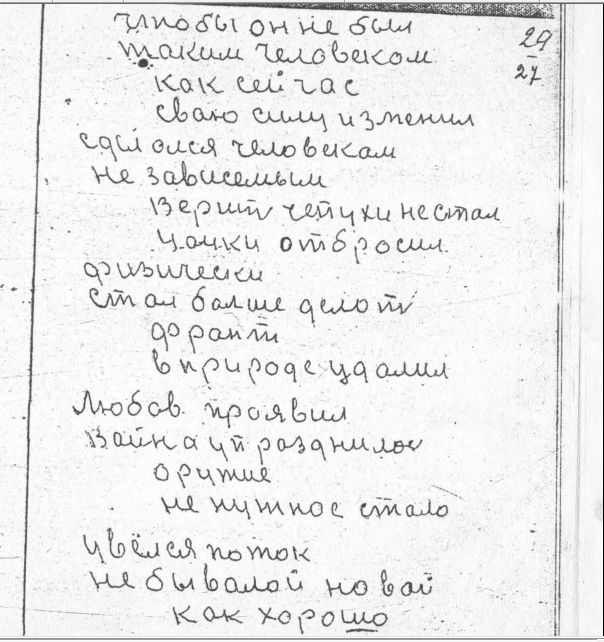 чтобы он не был
29
таким человеком
27
как сейчас
сваю силу изменил
сделолся человекам
не зависемым
верит чепухи не стал
отбросил
физически
стал балше делот
франт
в природе удалил
Любов проявил
вайна упразднилос
оружие
не нужное стало
увёлся поток
не бывалой новай
как хорошо